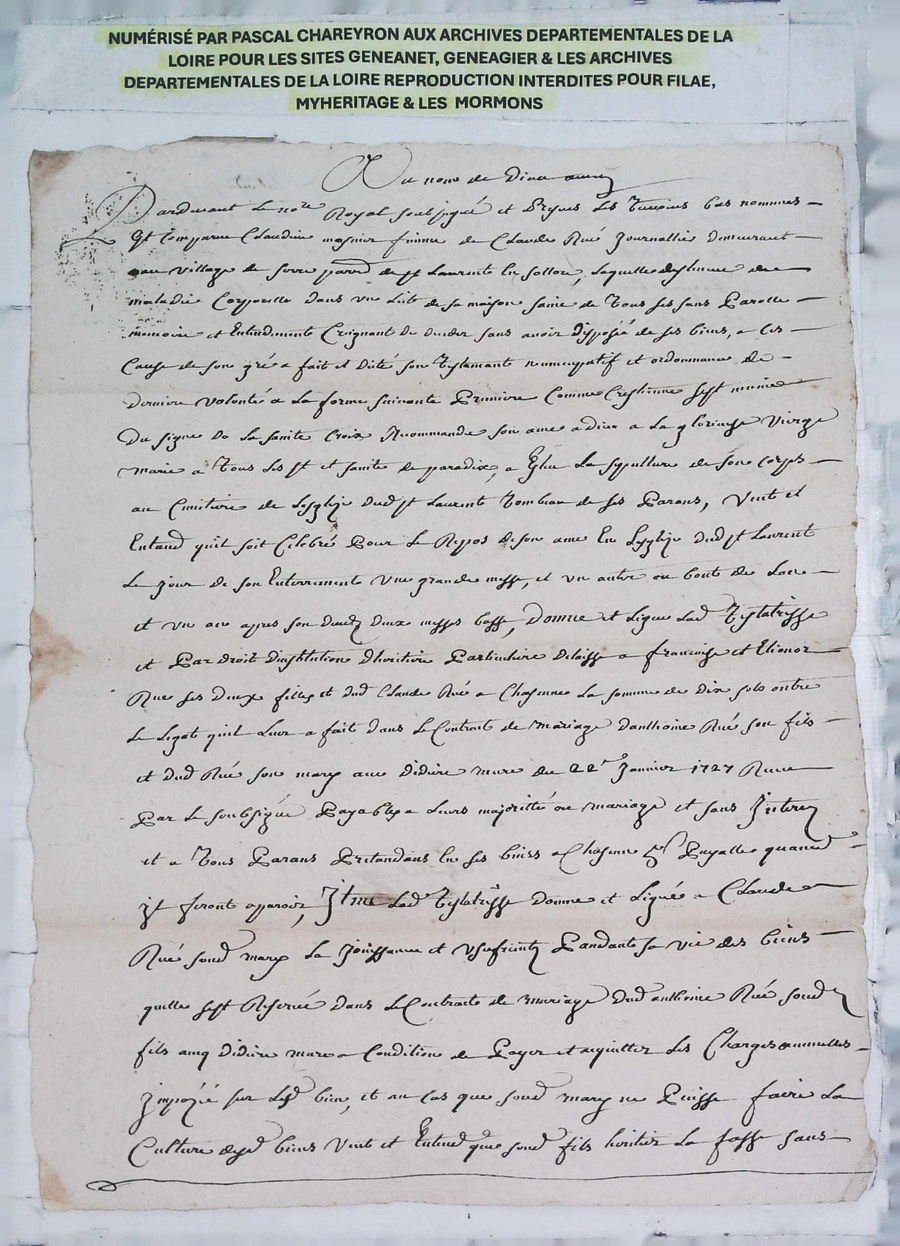 NUMÉRISÉ PAR PASCAL CHAREYRON AUX ARCHIVES DEPARTEMENTALES DE LA
LOIRE POUR LES SITES GENEANET, GENEAGIER & LES ARCHIVES
DEPARTEMENTALES DE LA LOIRE REPRODUCTION INTERDITES POUR FILAE,
MYHERITAGE & LES MORMONS
Au nom de Dieu amen
Pardevant le nore Royal soubsigné et Presens les Temoins bas nommés
Est Comparue Claudine mosnier femme de Claude Rué Journallier demeurant
au village de parr de st Laurent En sollou, Laquelle de
maladie Corporelle dans un Lit de sa maison saine de Tous ses sans Parolle
memoire et Entendement Craignant de deceder sans avoir disposée de ses biens, a Ces
Cause de son gré a fait et dité son Testamant noncuppatif et ordonnance de
derniere volonté a La forme suivante Premiere Comme Crestienne sest munie
Du signe de La sainte Croix Recommande son ame a dieu a La glorieuse vierge
marie a Tous Les st et sainte de paradix, a Eslu La sepulture de son Corps
au Cimitiere de Lesglize dud st Laurent Tombeau de ses Parans, veut et
Entand quil soit Celebré Pour Le Repos de son ame En Lesglize dud st Laurent
Le jour de son Enterrement une grande messe, et un autre au bout de Lan
et un an apres son deceds deux messes basse, Donne et Ligue Lad Testatrisse
et Par droit dinstitution dheritiere Particuliere delaisse a francoise et Elionor
Rue ses deux filles et dud Claude Rué a Chasenne La somme de dix sols outre
Le Legat quil Leur a fait dans Le Contrat de mariage danthoine Rué son fils
et dud Rué son mary avec didiere mure du 22e Janvier 1727 Receu
Par Le soubsigné Payables a Leurs majorité ou mariage et sans Jnterez
et a Tous Parans Pretendans En ses biens a Chasenne 5s Payalle quand
jl seront aparoir, Jtme Lad Testatrisse donne et Liguée a Claude
Rué soud mary La Jouissance et usufruit Pandant sa vie des biens
quelle sest Reservée dans Le Contrat de mariage dud anthoine Rué soud
fils avec didiere mure a Condition de Payer et aquitter Les Charges annuelles
jmpozée sur Lesd bien, et au Cas que soud mary ne Puisse faire La
Culture desd biens veut et Entend que soud fils heritier La fasse sans